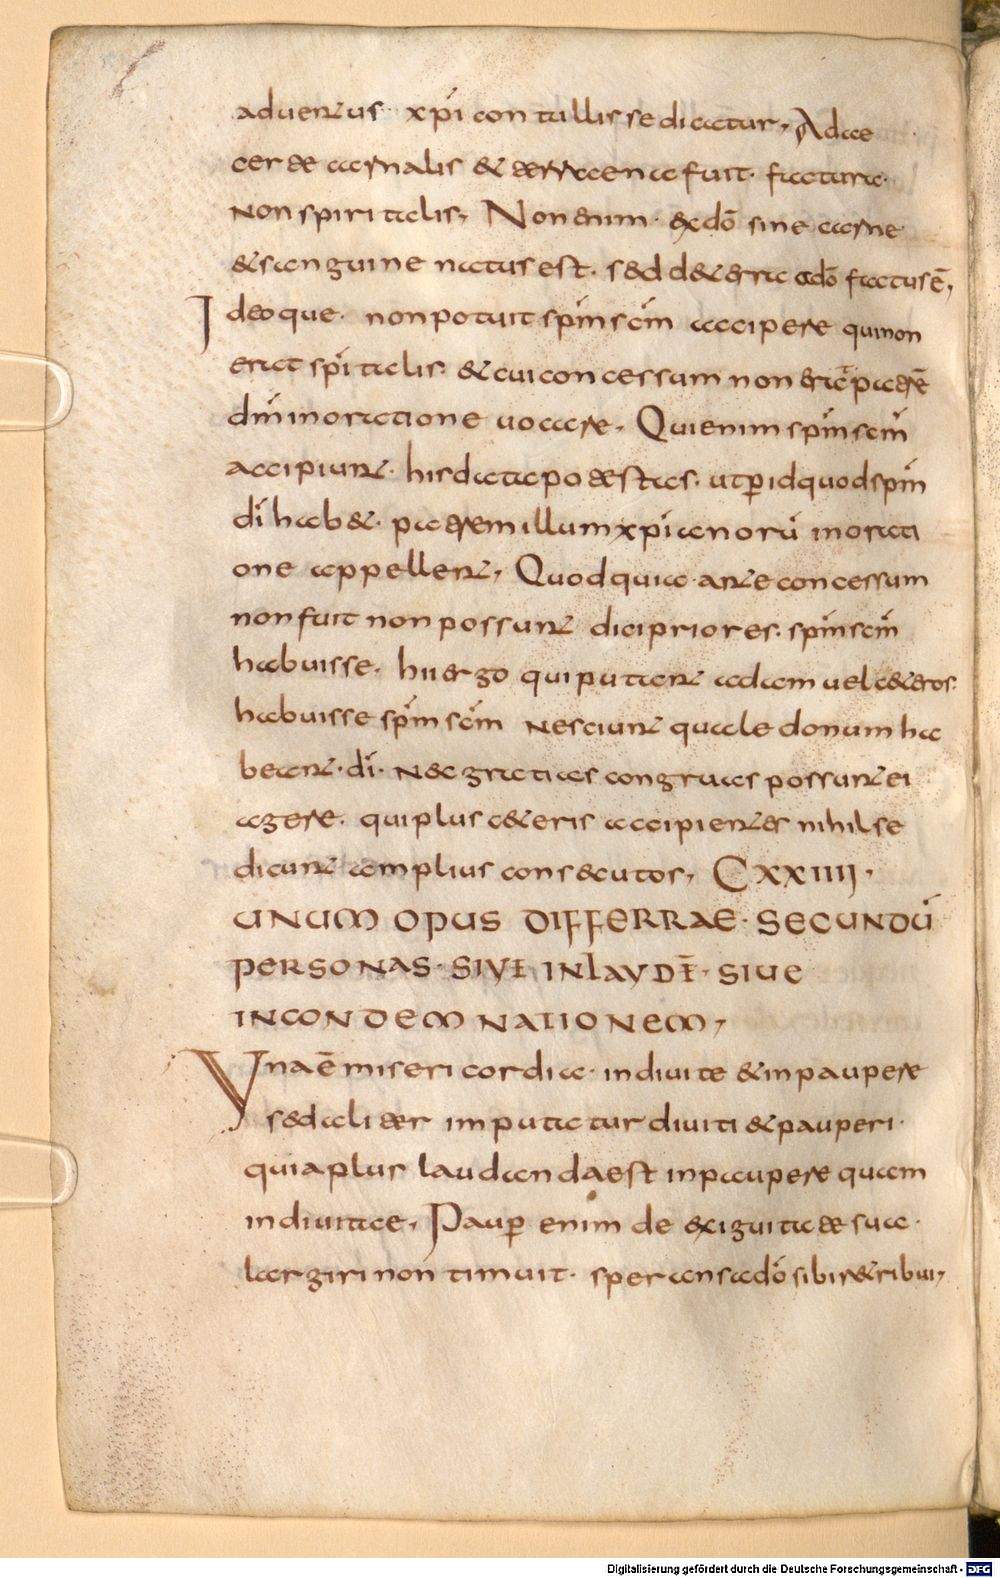 aduentus xpi contulisse dicatur, Adae
cer de carnalis & terrena fuit. factura.
non spiritalis, Non enim. exdō sine carne
& sanguine natus est. sed de terra adō factus ē,
Ideoque. non potuit spm scm accipere qui non
erat spitalis. & cui concessum non erat patrē
dm in oratione uocare, Qui enim spm scm
accipiunt. his data potestas. ut p id quod spm
di habet. patrem illum xpianorū in orati
one appellent, Quod quia ante concessum
non fuit non possunt dici priores. spm scm
habuisse. hii ergo qui putant adam uel ceteros.
habuisse spm scm nesciunt quale donum ha
beant. di. nec gratias congruas possunt ei
agere. qui plus ceteris accipientes nihil se
dicunt amplius consecutos, CXXIIII.
UNUM OPUS DIFFERRAE. SECUNDŪ
PERSONAS. SIVE IN LAUDĒ. SIUE
IN CONDEMNATIONEM,
Una ē misericordia. in diuite & in paupere
sed aliter imputatur diuiti & pauperi.
quia plus laudanda est in paupere quam
in diuitae, Paup enim de exiguitate sua.
largiri non timuit. sperans adō sibi retribui,
Digitalisierung gefördert durch die Deutsche Forschungsgemeinschaft - DFG